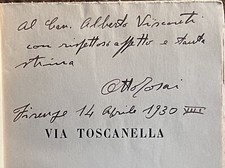 Al Cav. Alberto Visconti
con rispettoso affetto e tanta
stima
Otto Rosai
Firenze 14 Aprile 1930 VIII
VIA TOSCANELLA